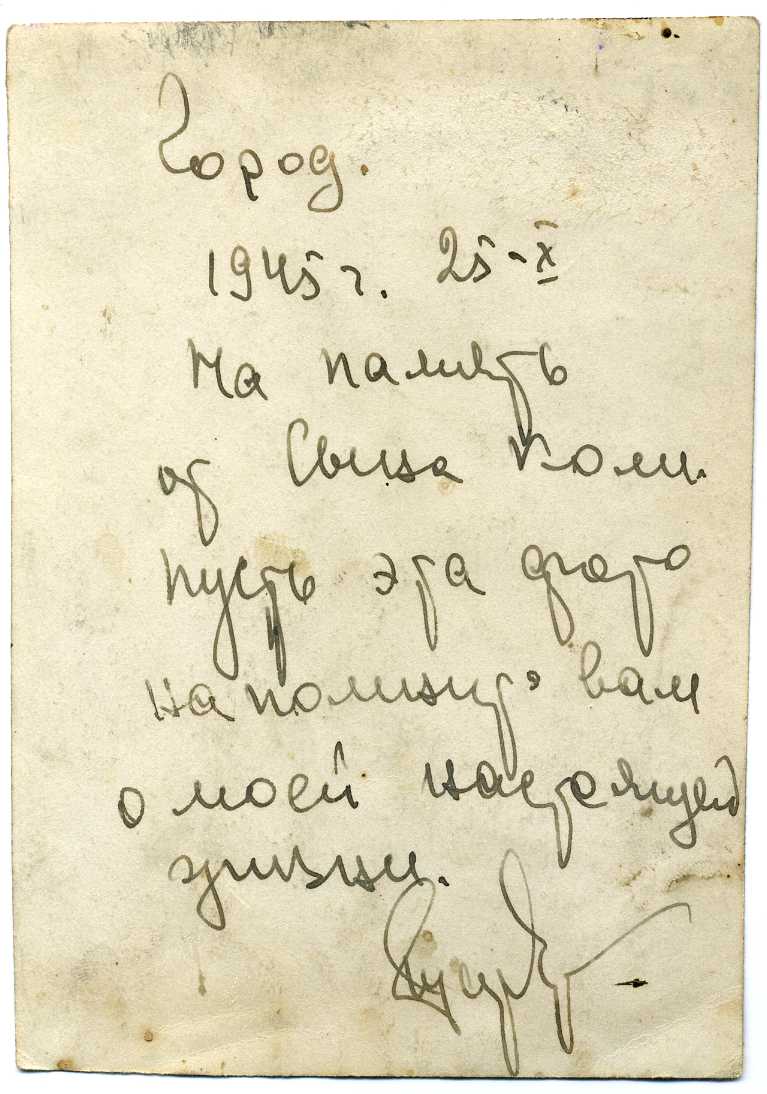 Город.
1945 г. 25-X
На память
от Сына Коли.
пусть эта фото
напомнит вам
о моей настоящей
жизни.